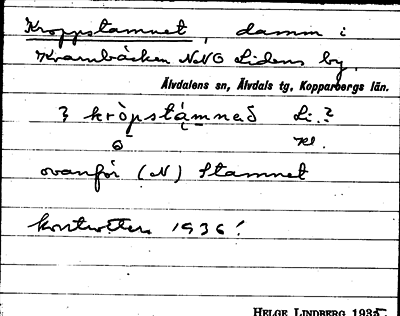 Kroppstamnet, damm i
Kvarnbäcken NNO Lidens by,
Älvdalens sn, Älvdals tg, Kopparbergs län.
kròpstąmneð Li.?
ovanför (N) Stamnet
1936!
HELGE LINDBERG 1935.